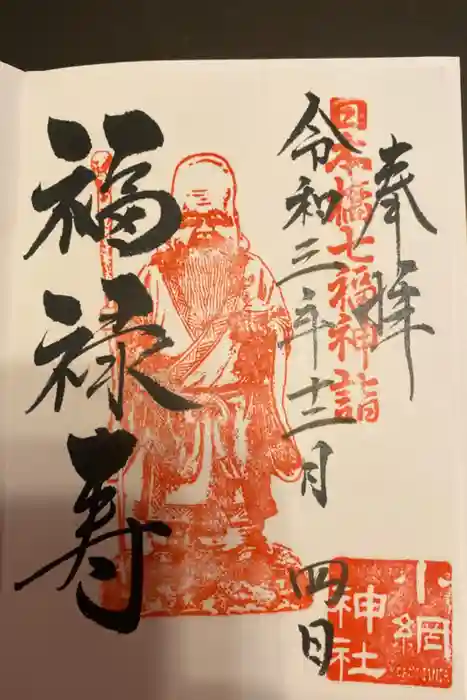 奉拝
日本橋七福神詣
令和三年十二月四日
福禄寿
小網
神社